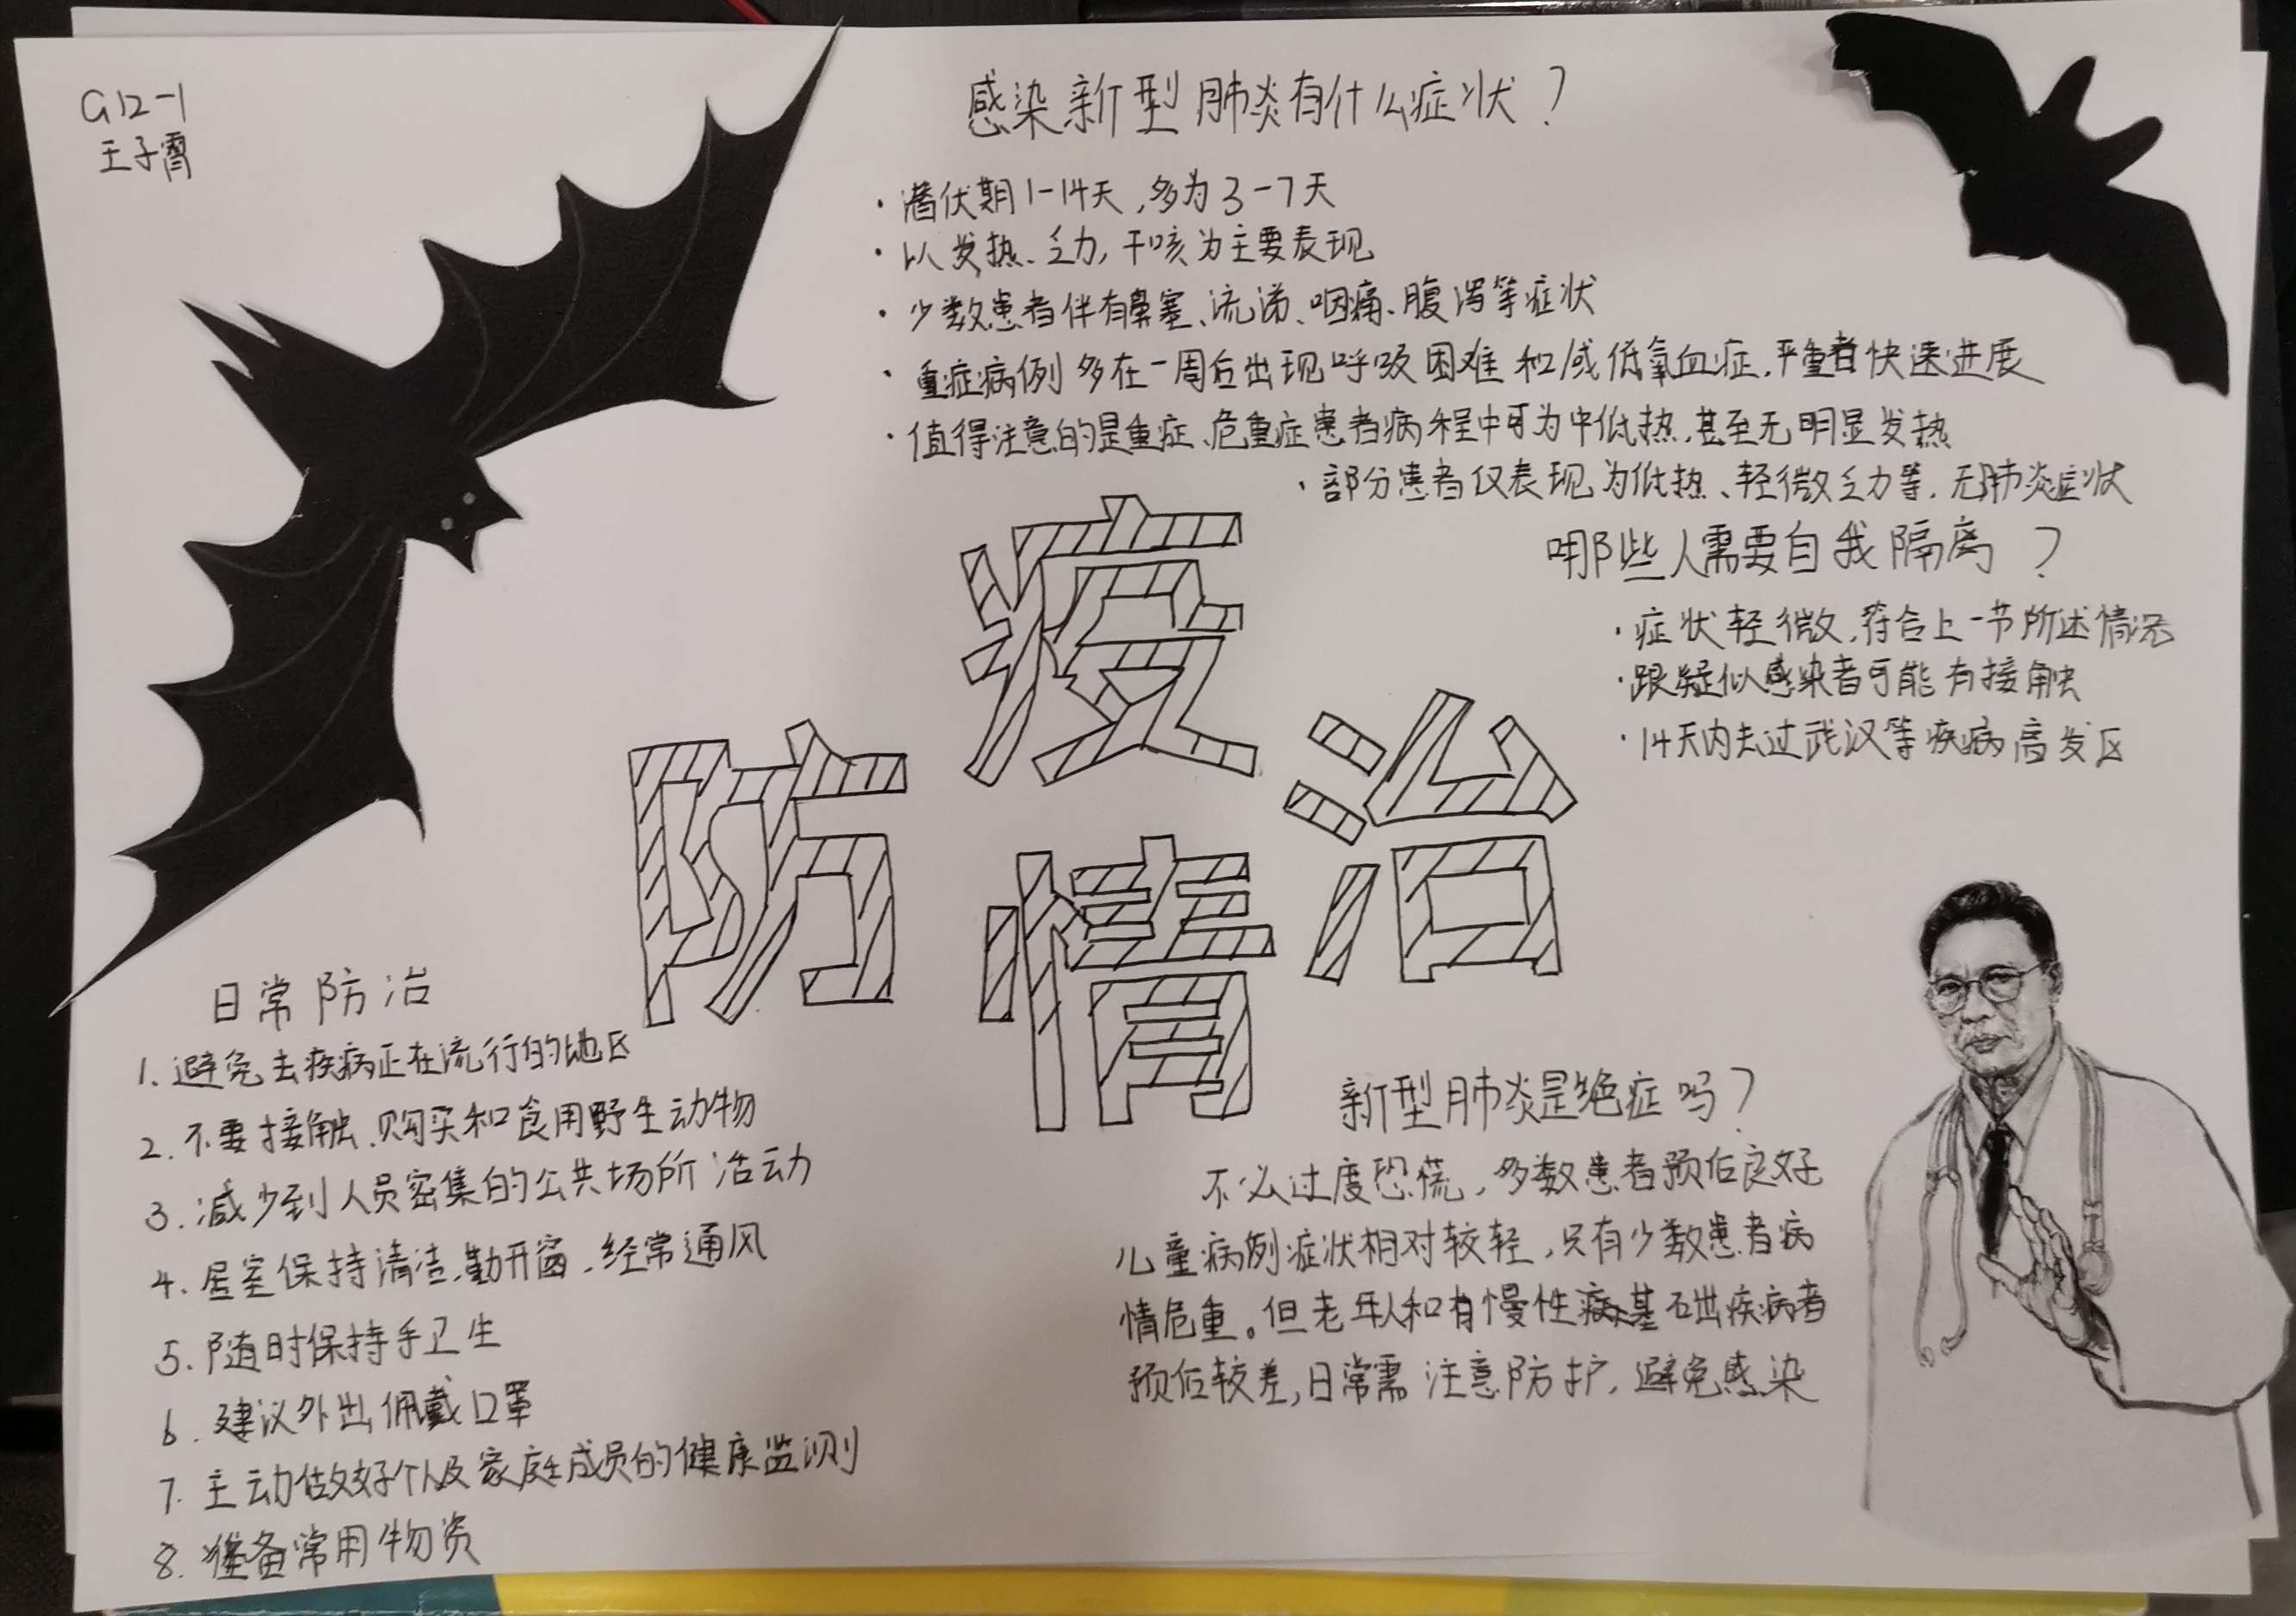 G12-1
王子霄
感染新型肺炎有什么症状？
·潜伏期1-14天,多为3-7天
·以发热、乏力,干咳为主要表现
·少数患者伴有鼻塞、流涕、咽痛、腹泻等症状
·重症病例多在一周后出现呼吸困难和/或低氧血症,严重者快速进展
·值得注意的是重症、危重症患者病程中可为中低热,甚至无明显发热
·部分患者仅表现为低热、轻微乏力等,无肺炎症状
哪些人需要自我隔离？
·症状轻微,符合上一节所述情况
·跟疑似感染者可能有接触
·14天内去过武汉等疾病高发区
防疫情治
日常防治
1.避免去疾病正在流行的地区
2.不要接触、购买和食用野生动物
3.减少到人员密集的公共场所活动
4.居室保持清洁,勤开窗,经常通风
5.随时保持手卫生
6.建议外出佩戴口罩
7.主动做好个人及家庭成员的健康监测
8.准备常用物资
新型肺炎是绝症吗？
不必过度恐慌,多数患者预后良好
儿童病例症状相对较轻,只有少数患者病
情危重。但老年人和有慢性病基础疾病者
预后较差,日常需注意防护,避免感染